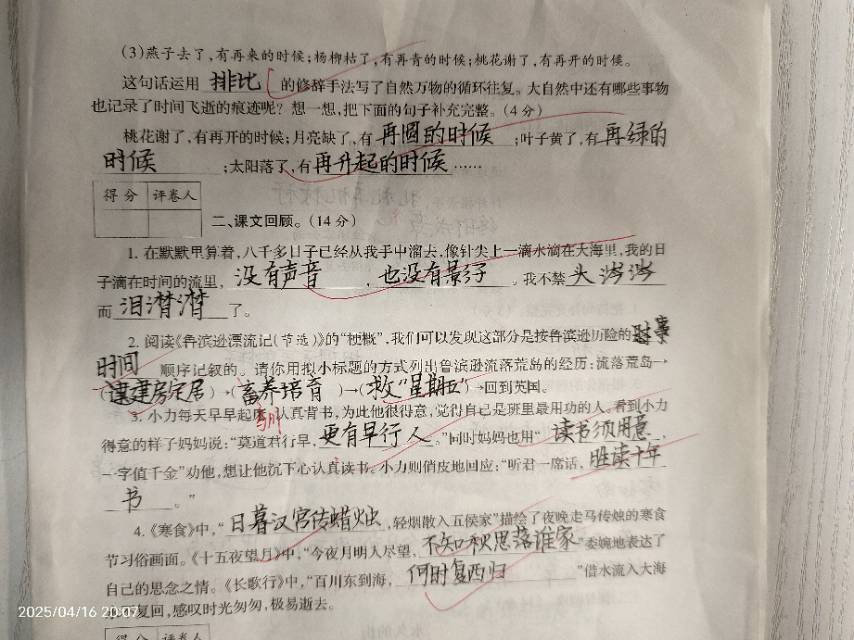 (3)燕子去了,有再来的时候;杨柳枯了,有再青的时候;桃花谢了,有再开的时候。
这句话运用 排比 的修辞手法写了自然万物的循环往复。大自然中还有哪些事物
也记录了时间飞逝的痕迹呢?想一想,把下面的句子补充完整。(4分)
桃花谢了,有再开的时候;月亮缺了,有再圆的时候;叶子黄了,有再绿的
时候;太阳落了,有再升起的时候……
得分 评卷人
二、课文回顾。(14分)
1. 在默默里算着,八千多日子已经从我手中溜去,像针尖上一滴水滴在大海里,我的日
子滴在时间的流里,没有声音,也没有影子。我不禁头涔涔
而泪潸潸了。
2. 阅读《鲁滨逊漂流记(节选)》的“梗概”,我们可以发现这部分是按鲁滨逊历险的
时间 顺序记叙的。请你用拟小标题的方式列出鲁滨逊流落荒岛的经历:流落荒岛→
(建房定居)→(畜养培育)→(救“星期五”)→回到英国。
3. 小力每天早早起床,认真背书,为此他很得意,觉得自己是班里最用功的人。看到小力
得意的样子妈妈说:“莫道君行早,更有早行人。”同时妈妈也用“读书须用意,
一字值千金”劝他,想让他沉下心认真读书。小力则俏皮地回应:“听君一席话,胜读十年
书。”
4.《寒食》中,“日暮汉宫传蜡烛,轻烟散入五侯家”描绘了夜晚走马传烛的寒食
节习俗画面。《十五夜望月》中,“今夜月明人尽望,不知秋思落谁家”委婉地表达了
自己的思念之情。《长歌行》中,“百川东到海,何时复西归”借水流入大海
复回,感叹时光匆匆,极易逝去。
2025/04/16 20:07
得分 评卷人